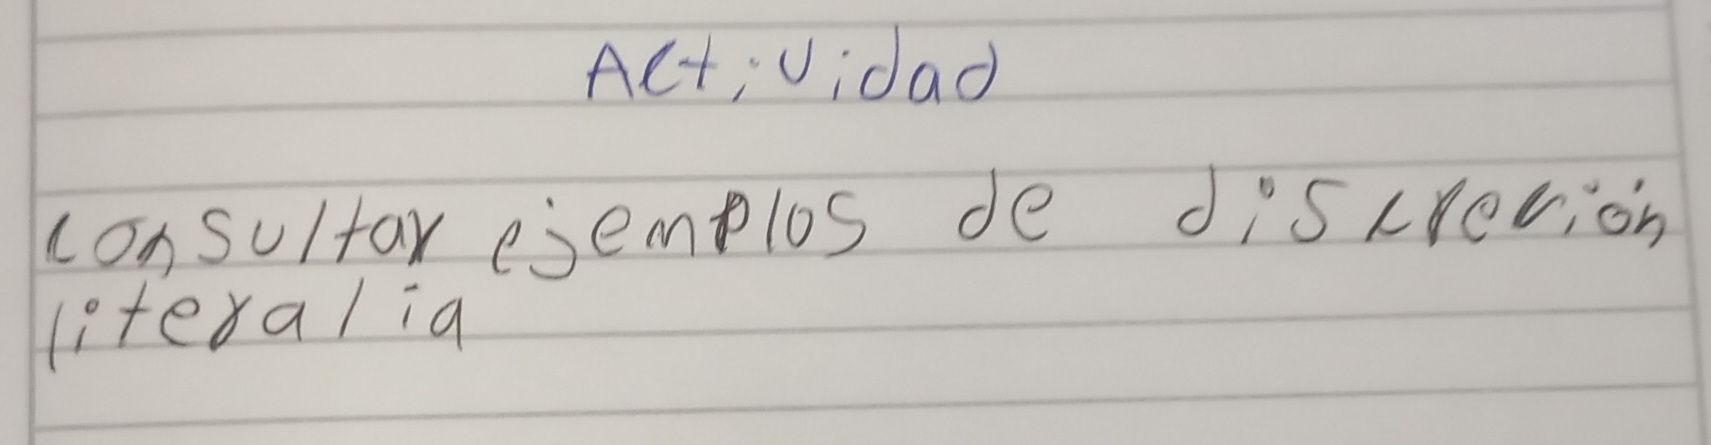 Actividad
consultar ejemplos de discreción
literalia